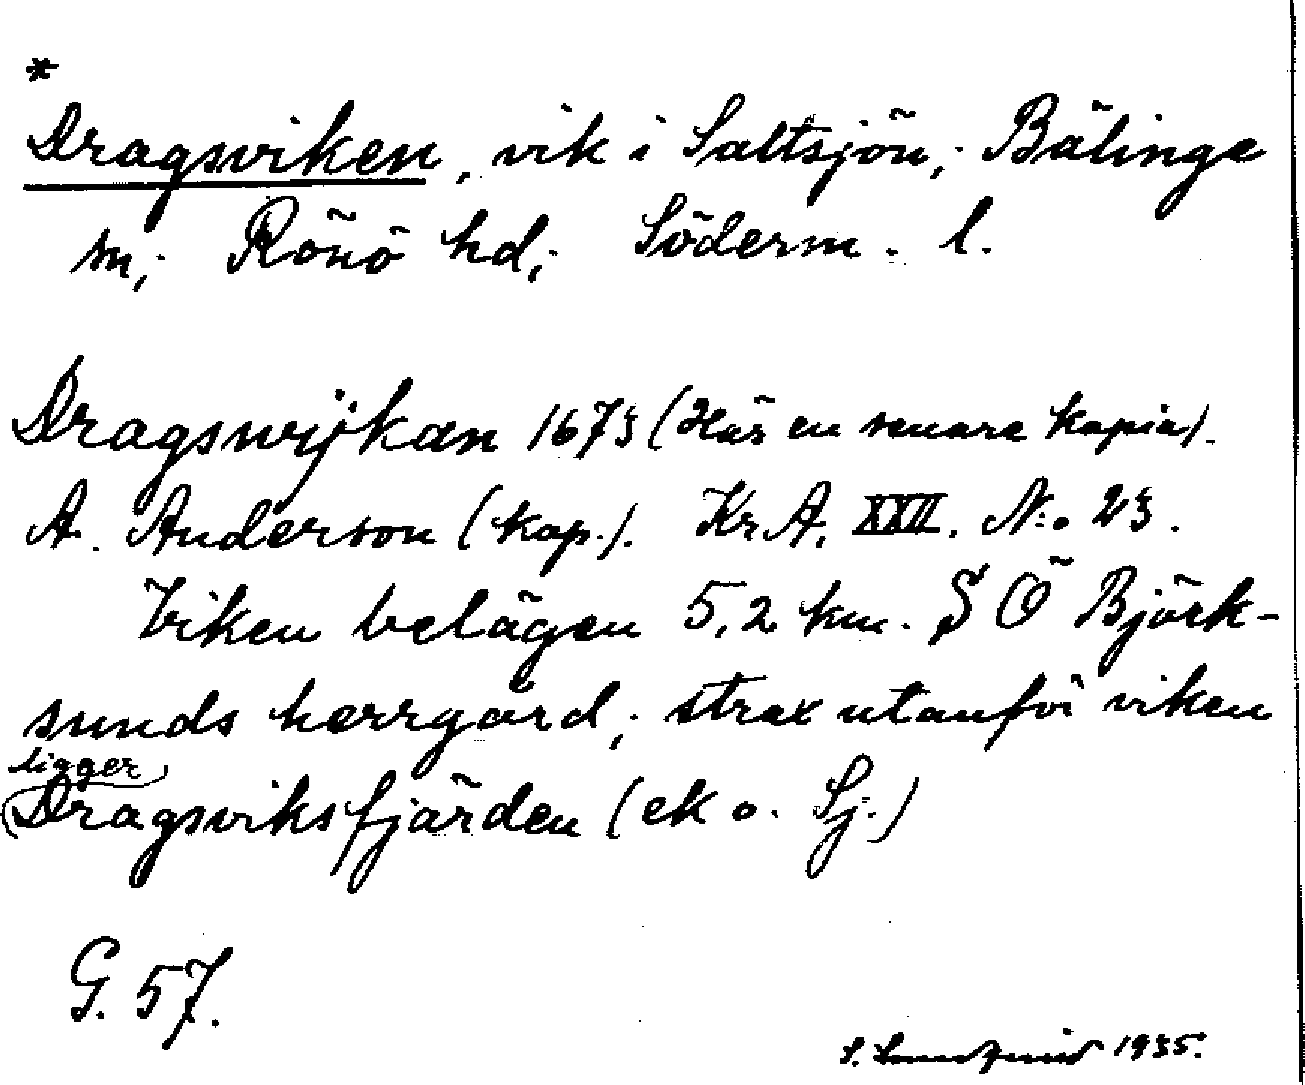 *
Dragsviken, vik i Saltsjön, Bälinge
sn, Rönö hd, Söderm. l.
Dragswijkan 1673 (Här en senare kopia).
A. Anderson (kop.). Kr. A. XXII. N:o 23.
Viken belägen 5,2 km. S Ö Björk-
sunds herrgård, strax utanför viken
ligger
Dragsviksfjärden (ek o. Sj.)
G. 57.
S. 1935.